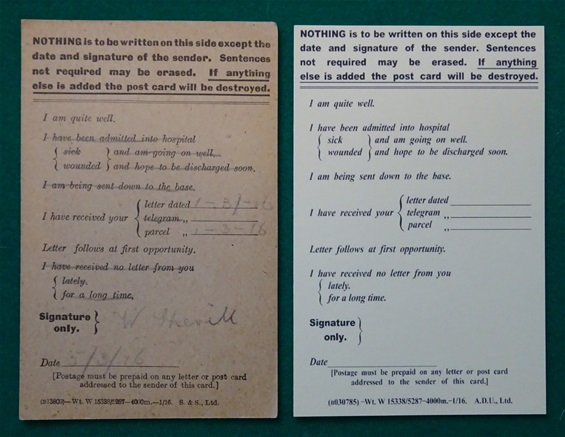 NOTHING is to be written on this side except the
date and signature of the sender. Sentences
not required may be erased. If anything
else is added the post card will be destroyed.
I am quite well.
I have been admitted into hospital
sick
wounded
and am going on well.
and hope to be discharged soon.
I am being sent down to the base.
I have received your
letter dated
telegram „
parcel „ 1-3-16
Letter follows at first opportunity.
I have received no letter from you
lately.
for a long time.
Signature
only.
W
Date 5/3/16
[Postage must be prepaid on any letter or post card
addressed to the sender of this card.]
Wt. W 15338/5287—4000m.—1/16. S. & G., Ltd.
NOTHING is to be written on this side except the
date and signature of the sender. Sentences
not required may be erased. If anything
else is added the post card will be destroyed.
I am quite well.
I have been admitted into hospital
sick
wounded
and am going on well.
and hope to be discharged soon.
I am being sent down to the base.
I have received your
letter dated
telegram „
parcel „
Letter follows at first opportunity.
I have received no letter from you
lately.
for a long time.
Signature
only.
Date
[Postage must be prepaid on any letter or post card
addressed to the sender of this card.]
(n030785) –Wt. W 15338/5287–4000m.–1/16. A.D.U., Ltd.